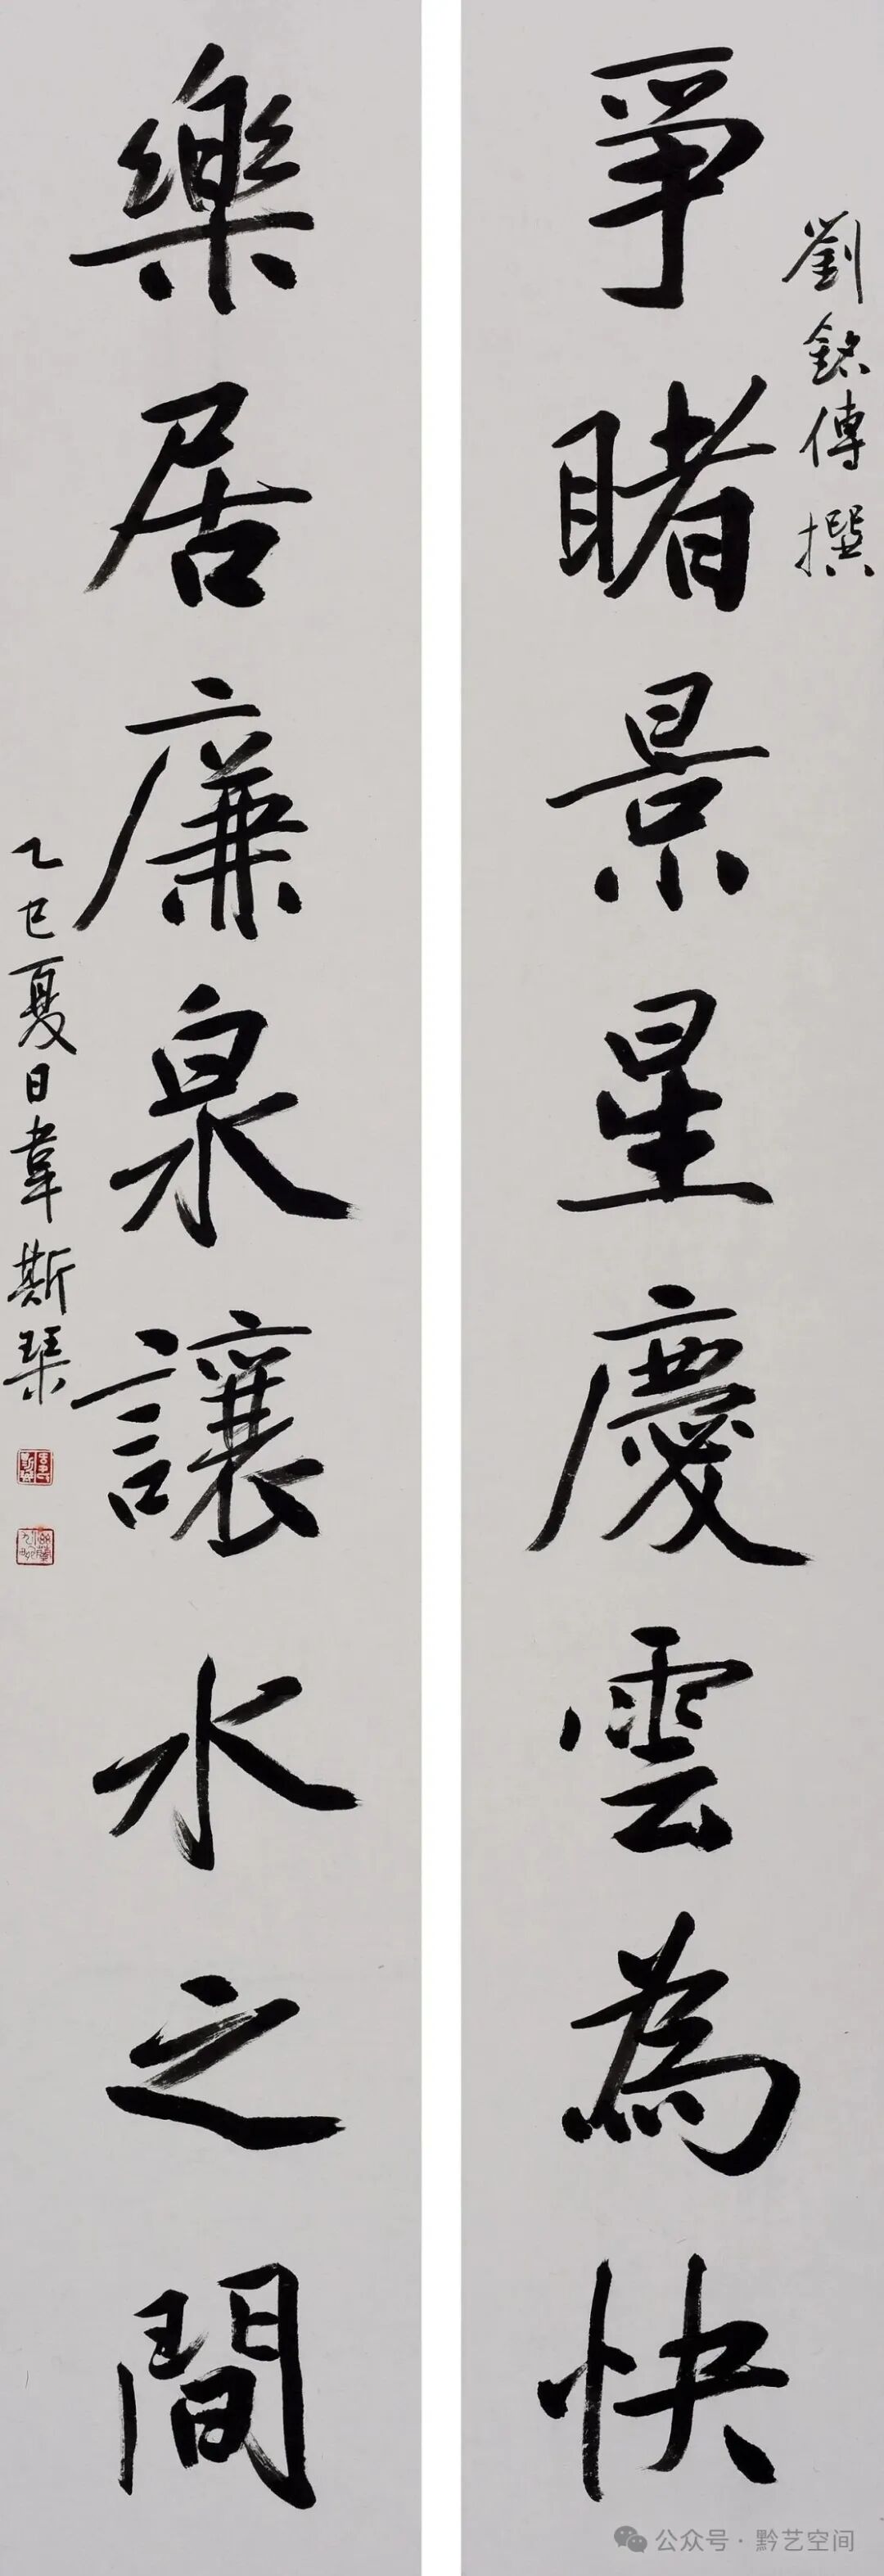 劉銘傳撰
爭睹景星慶雲為快
樂居廉泉讓水之間
乙巳夏日韋斯琹
公众号·黔艺空间